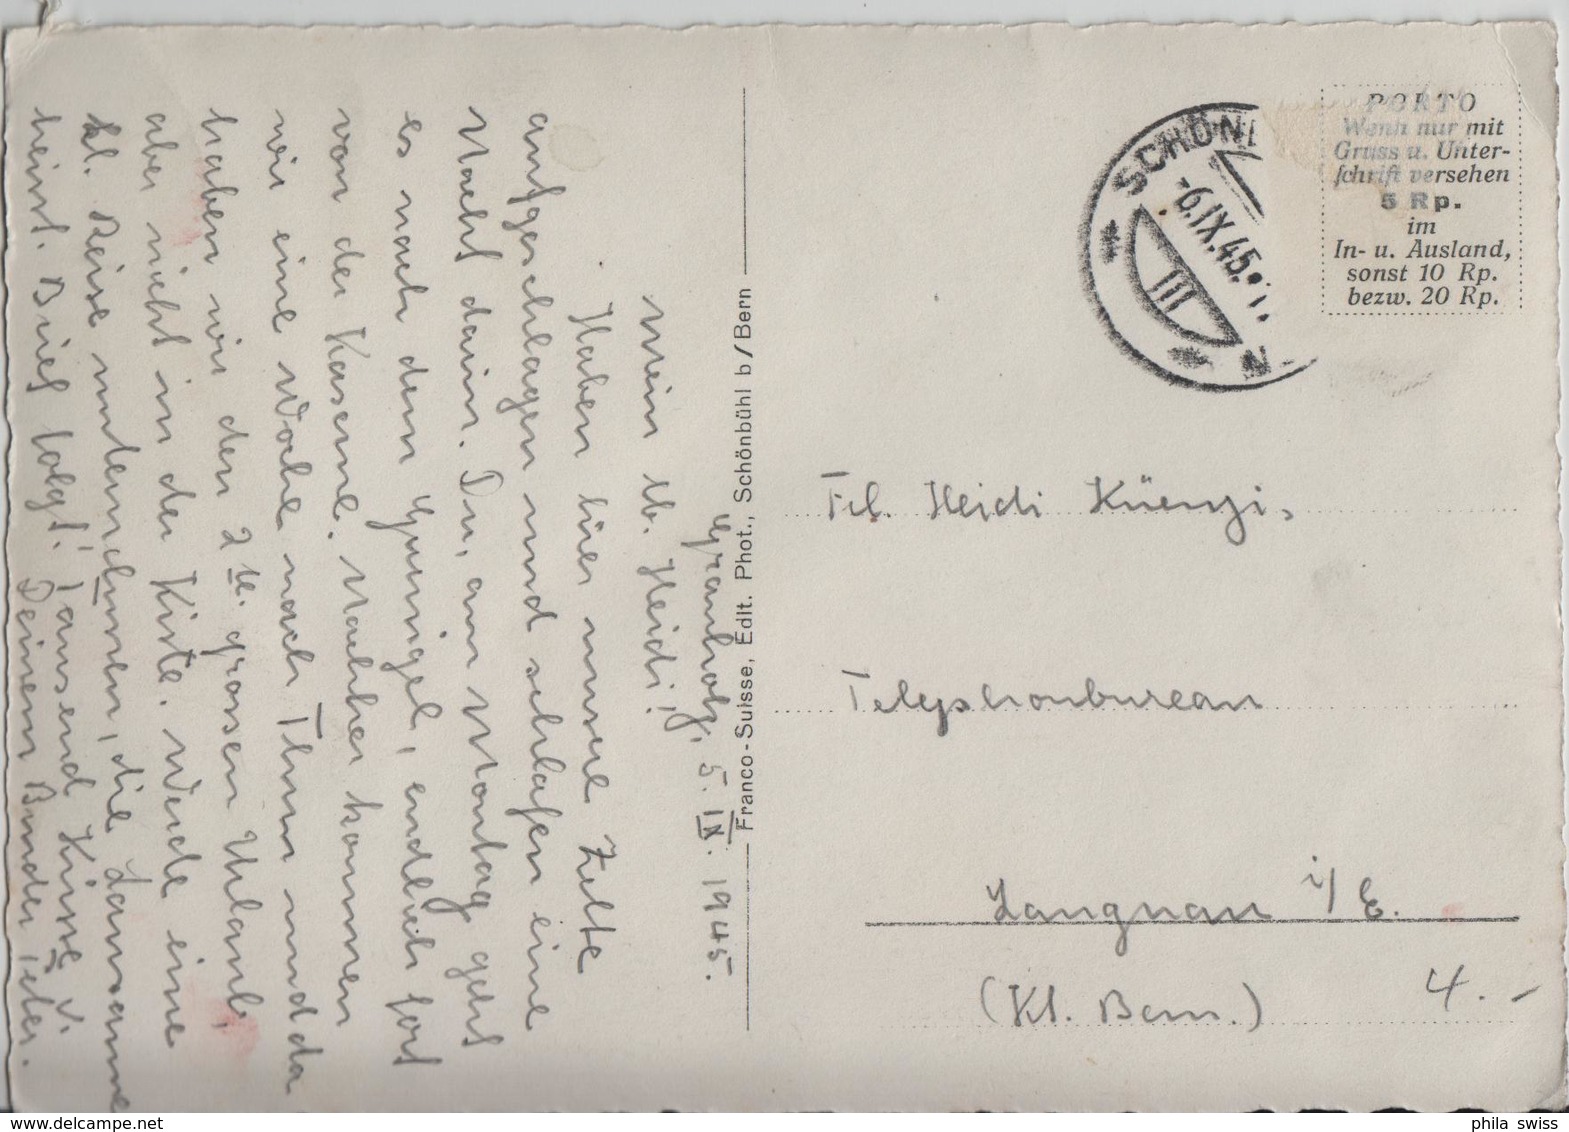 Grauholz, 5. IX. 1945.
Mein lb. Heidi!
Haben hier unsere Zelte
aufgeschlagen und schlafen eine
Nacht darin. Du, am Montag geht
es nach dem Gurnigel, endlich fort
von der Kaserne. Nachher kommen
wir eine Woche nach Thun und da
haben wir den 2te. grossen Urlaub,
aber nicht in der Kiste. Werde eine
kl. Reise unternehmen, die Lausanne
heisst. Brief folgt! Tausend Küsse v.
Deinem Bruder
Franco-Suisse, Édit. Phot., Schönbühl b/Bern
SCHÖN
-6.IX.45.
III
PORTO
Wenn nur mit
Gruss u. Unter-
schrift versehen
5 Rp.
im
In- u. Ausland,
sonst 10 Rp.
bezw. 20 Rp.
Frl. Heidi Küenzi,
Telephonbureau
Langnau i/E.
(Kt. Bern.)
4.-
www.delcampe.net
phila swiss